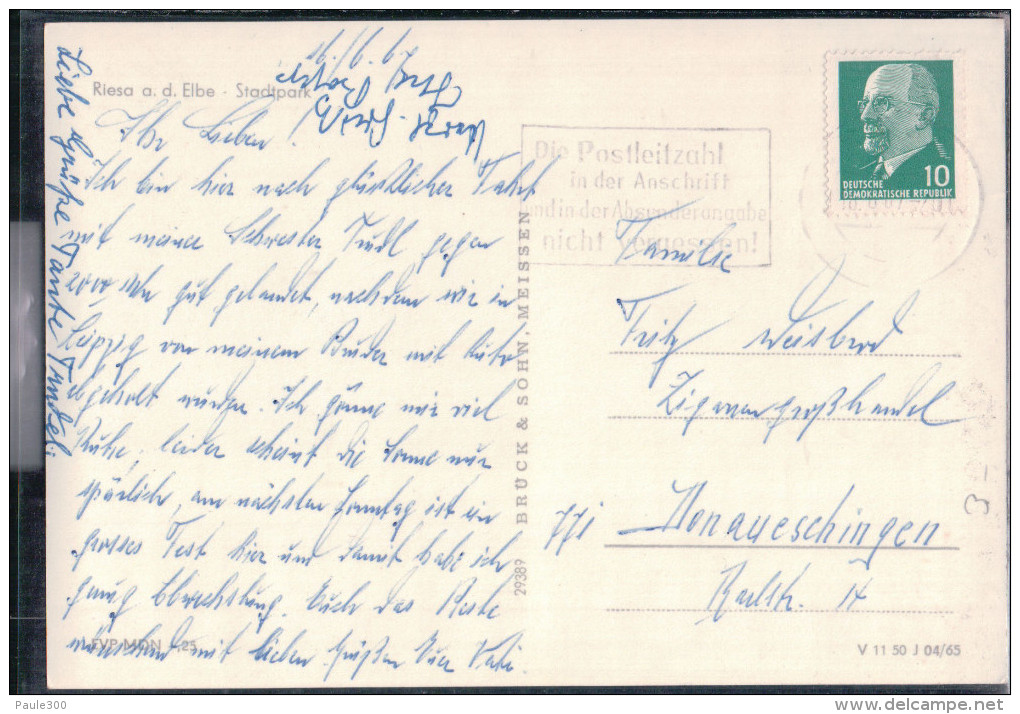 Riesa a. d. Elbe · Stadtpark
16./6. 67
Ihr Lieben!
Ich bin hier nach glücklicher Fahrt
mit meiner Schwester Trudl gegen
2000 Uhr gut gelandet, nachdem wir in
Leipzig von meinem Bruder mit Auto
abgeholt wurden. Ich gönne mir viel
Ruhe, leider scheint die Sonne nur
spärlich, am nächsten Sonntag ist ein
grosses Fest hier und damit habe ich
genug Abwechslung. Euch das Beste
wünschend mit lieben Grüßen Euer Vati.
Liebe Grüße Tante Trudel
EVP MDN -,25
29389 BRÜCK & SOHN, MEISSEN
Die Postleitzahl
in der Anschrift
und in der Absenderangabe
nicht vergessen!
10
DEUTSCHE
DEMOKRATISCHE REPUBLIK
Familie
Fritz Weisbrod
Zigarrengroßhandel
771 Donaueschingen
Karlstr. 14
3-
V 11 50 J 04/65
Paule300